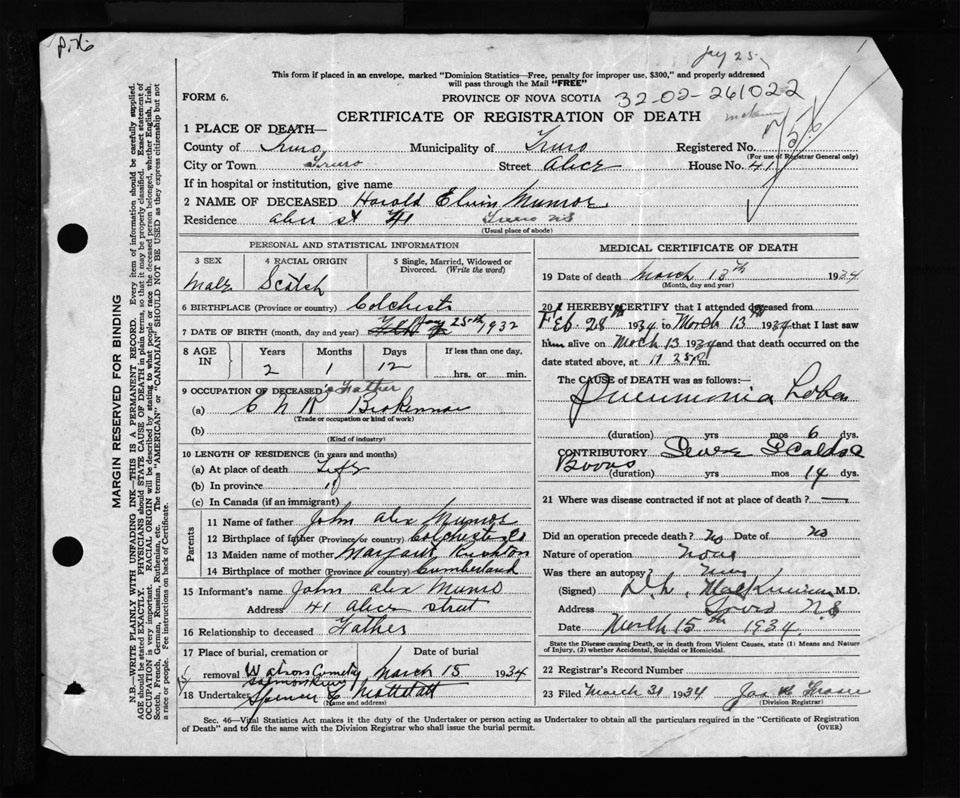 Jay 25
This form if placed in an envelope, marked "Dominion Statistics—Free, penalty for improper use, $300," and properly addressed
will pass through the Mail "FREE"
FORM 6.
PROVINCE OF NOVA SCOTIA 32-02-261022
CERTIFICATE OF REGISTRATION OF DEATH
1 PLACE OF DEATH—
County of Truro Municipality of Truro Registered No.
(For use of Registrar General only)
City or Town Truro Street Alice House No. 41
If in hospital or institution, give name
2 NAME OF DECEASED Harold Elvin Munroe
Residence alice st 41 Truro NS
(Usual place of abode)
PERSONAL AND STATISTICAL INFORMATION
3 SEX 4 RACIAL ORIGIN 5 Single, Married, Widowed or Divorced. (Write the word)
Male Scotch
6 BIRTHPLACE (Province or County) Colchester
7 DATE OF BIRTH (month, day and year) 25th 1932
8 AGE IN Years Months Days If less than one day,
2 1 12 hrs. or min.
9 OCCUPATION OF DECEASED's Father
(a) C N R
(Trade or occupation or kind of work)
(b)
(Kind of industry)
10 LENGTH OF RESIDENCE (in years and months)
(a) At place of death Life
(b) In province "
(c) In Canada (if an immigrant)
Parents
11 Name of father John alex Munroe
12 Birthplace of father (Province or country) Colchester Co
13 Maiden name of mother Margaret Rushton
14 Birthplace of mother (Province or country) Cumberland
15 Informant's name John alex Munro
Address 41 alice street
16 Relationship to deceased Father
17 Place of burial, cremation or removal Date of burial
Watsons Cemetry March 15 1934
18 Undertaker Spencer
(Name and address)
MEDICAL CERTIFICATE OF DEATH
19 Date of death March 13th 1934
(Month, day and year)
20 I HEREBY CERTIFY that I attended deceased from
Feb. 28th 1934 to March 13th 1934 that I last saw
him alive on March 13 1934 and that death occurred on the
date stated above, at m.
The CAUSE of DEATH was as follows:—
Pneumonia Lobar
(duration) yrs mos 6 dys.
CONTRIBUTORY Severe Scalds &
Burns
(duration) yrs mos 14 dys.
21 Where was disease contracted if not at place of death?
Did an operation precede death? No Date of No
Nature of operation None
Was there an autopsy?
(Signed) M.D.
Address Truro N.S
Date March 15th 1934.
State the Disease causing Death, or in death from Violent Causes, state (1) Means and Nature
of Injury, (2) whether Accidental, Suicidal or Homicidal.
22 Registrar's Record Number
23 Filed March 31 1934 Jas
(Division Registrar)
Sec. 46—Vital Statistics Act makes it the duty of the Undertaker or person acting as Undertaker to obtain all the particulars required in the "Certificate of Registration
of Death" and to file the same with the Division Registrar who shall issue the burial permit. (OVER)
MARGIN RESERVED FOR BINDING
N.B.—WRITE PLAINLY WITH UNFADING INK—THIS IS A PERMANENT RECORD. Every item of information should be carefully supplied.
AGE should be stated EXACTLY. PHYSICIANS should STATE CAUSE OF DEATH in plain terms, so that it may be properly classified. Exact statement of
OCCUPATION is very important. RACIAL ORIGIN will be described by stating to what people or race the deceased person belonged, whether English, Irish,
Scotch, French, German, Russian, Ruthenian, etc. The terms "AMERICAN" or "CANADIAN" SHOULD NOT BE USED as they express citizenship but not
a race or people. Fee instructions on back of Certificate.